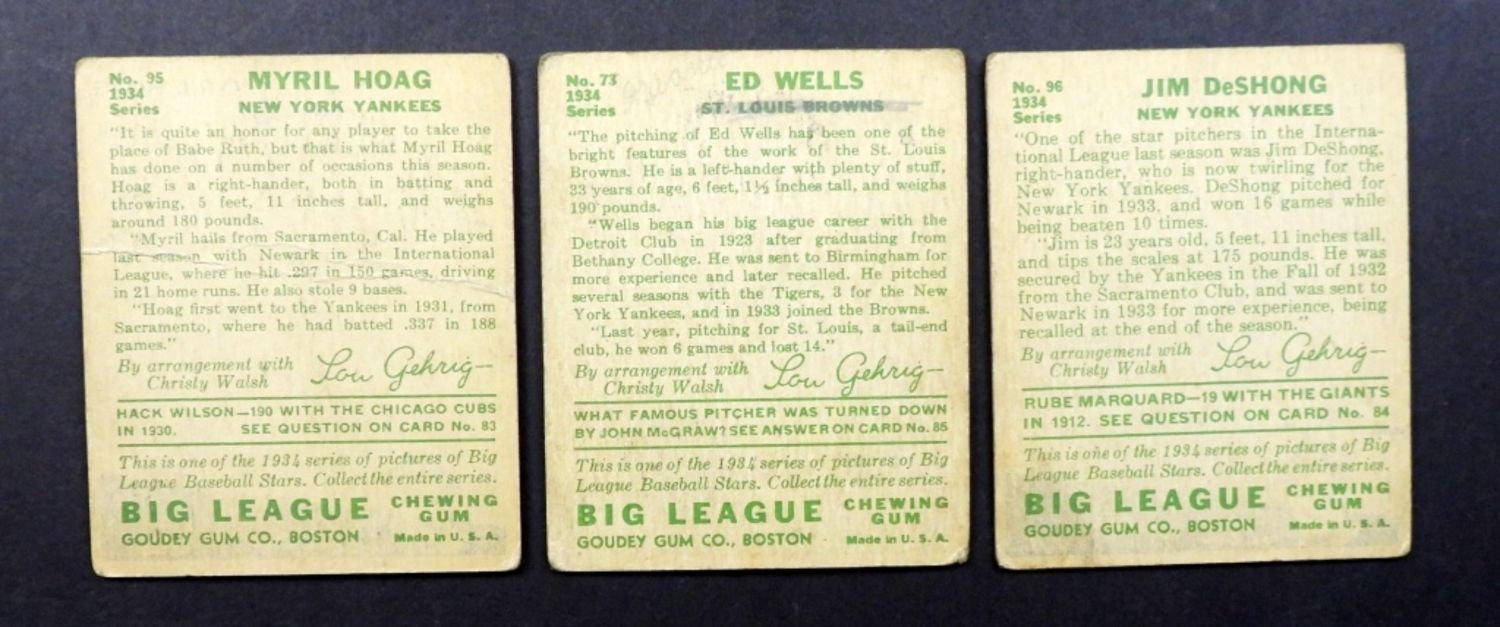 No. 95
1934
Series
MYRIL HOAG
NEW YORK YANKEES
"It is quite an honor for any player to take the
place of Babe Ruth, but that is what Myril Hoag
has done on a number of occasions this season.
Hoag is a right-hander, both in batting and
throwing, 5 feet, 11 inches tall, and weighs
around 180 pounds.
"Myril hails from Sacramento, Cal. He played
last season with Newark in the International
League, where he hit .297 in 150 games, driving
in 21 home runs. He also stole 9 bases.
"Hoag first went to the Yankees in 1931, from
Sacramento, where he had batted .337 in 188
games."
By arrangement with
Christy Walsh
Lou Gehrig—
HACK WILSON—190 WITH THE CHICAGO CUBS
IN 1930. SEE QUESTION ON CARD No. 83
This is one of the 1934 series of pictures of Big
League Baseball Stars. Collect the entire series.
BIG LEAGUE CHEWING GUM
GOUDEY GUM CO., BOSTON Made in U. S. A.
No. 73
1934
Series
ED WELLS
ST. LOUIS BROWNS
"The pitching of Ed Wells has been one of the
bright features of the work of the St. Louis
Browns. He is a left-hander with plenty of stuff,
33 years of age, 6 feet, 1½ inches tall, and weighs
190 pounds.
"Wells began his big league career with the
Detroit Club in 1923 after graduating from
Bethany College. He was sent to Birmingham for
more experience and later recalled. He pitched
several seasons with the Tigers, 3 for the New
York Yankees, and in 1933 joined the Browns.
"Last year, pitching for St. Louis, a tail-end
club, he won 6 games and lost 14."
By arrangement with
Christy Walsh
Lou Gehrig—
WHAT FAMOUS PITCHER WAS TURNED DOWN
BY JOHN McGRAW? SEE ANSWER ON CARD No. 85
This is one of the 1934 series of pictures of Big
League Baseball Stars. Collect the entire series.
BIG LEAGUE CHEWING GUM
GOUDEY GUM CO., BOSTON Made in U. S. A.
No. 96
1934
Series
JIM DeSHONG
NEW YORK YANKEES
"One of the star pitchers in the Interna-
tional League last season was Jim DeShong,
right-hander, who is now twirling for the
New York Yankees. DeShong pitched for
Newark in 1933, and won 16 games while
being beaten 10 times.
"Jim is 23 years old, 5 feet, 11 inches tall,
and tips the scales at 175 pounds. He was
secured by the Yankees in the Fall of 1932
from the Sacramento Club, and was sent to
Newark in 1933 for more experience, being
recalled at the end of the season."
By arrangement with
Christy Walsh
Lou Gehrig—
RUBE MARQUARD—19 WITH THE GIANTS
IN 1912. SEE QUESTION ON CARD No. 84
This is one of the 1934 series of pictures of Big
League Baseball Stars. Collect the entire series.
BIG LEAGUE CHEWING GUM
GOUDEY GUM CO., BOSTON Made in U. S. A.